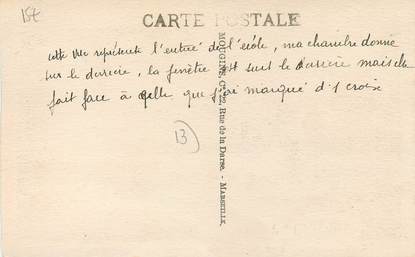 15€
CARTE POSTALE
cette vue représente l'entrée de l'école, ma chambre donne
sur le derrière, la fenêtre est sur le derrière mais elle
fait face à celle que j'ai marqué d'1 croix
13
MOUGINS, C., 22, Rue de la Darse. - MARSEILLE.